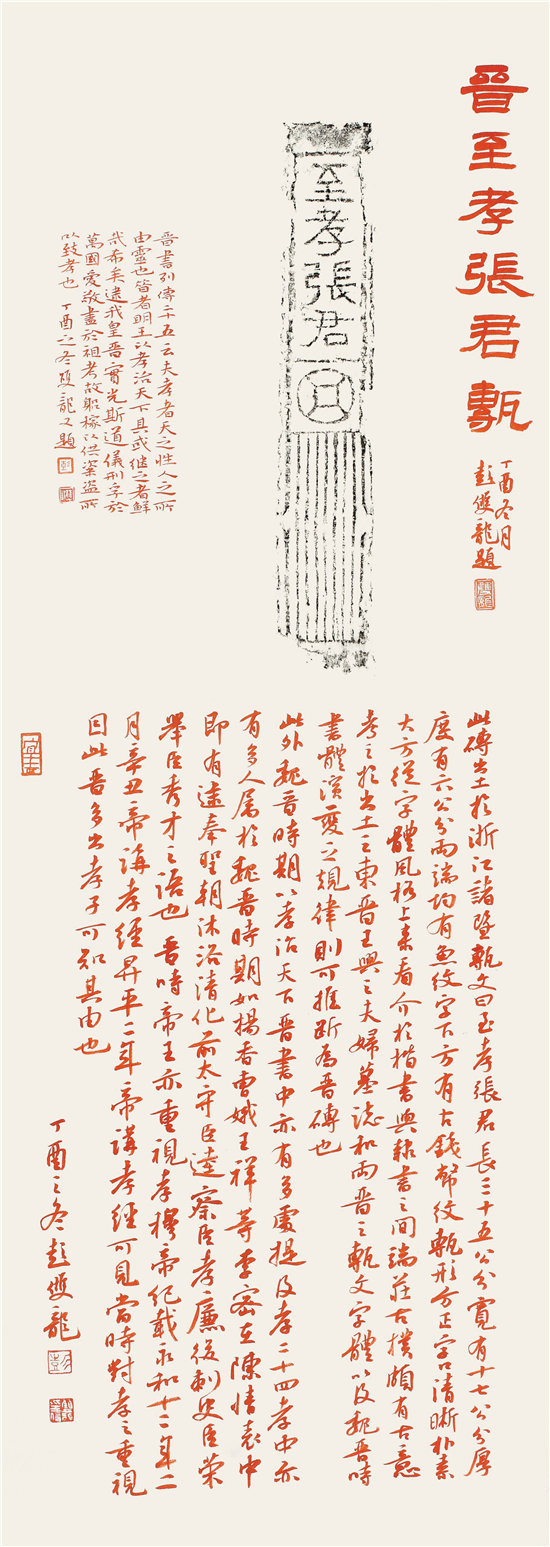 晉至孝張君甎
丁酉冬月
彭雙龍題
至孝張君
晉書列傳二十五云夫孝者天之性人之所
由靈也昔者明王以孝治天下其或继之者鮮
哉希矣逮我皇晉實光斯道儀刑孚於
萬國愛敬盡於祖考故躬稼以供粢盛所
以致孝也 丁酉之冬雙龍又題
此磚出土於浙江諸暨甎文曰至孝張君長三十五公分寬有十七公分厚
度有六公分兩端均有魚紋字下方有古錢幣紋甎形方正字口清晰朴素
大方從字體風格上来看介於楷書與隸書之間端莊古樸頗有古意
考之於出土之東晉王興之夫婦墓誌和兩晉之甎文字體以及魏晉時
書體演變之規律則可推断為晉磚也
此外魏晉時期以孝治天下晉書中亦有多處提及孝二十四孝中亦
有多人属於魏晉時期如楊香曹娥王祥等李密在陳情表中
即有逮奉聖朝沐浴清化前太守臣逵察臣孝廉後刺史臣榮
舉臣秀才之語也晉時帝王亦重視孝穆帝纪載永和十二年二
月辛丑帝講孝經昇平二年帝講孝經可見當時對孝之重視
因此晉多出孝子可知其由也
丁酉之冬彭雙龍